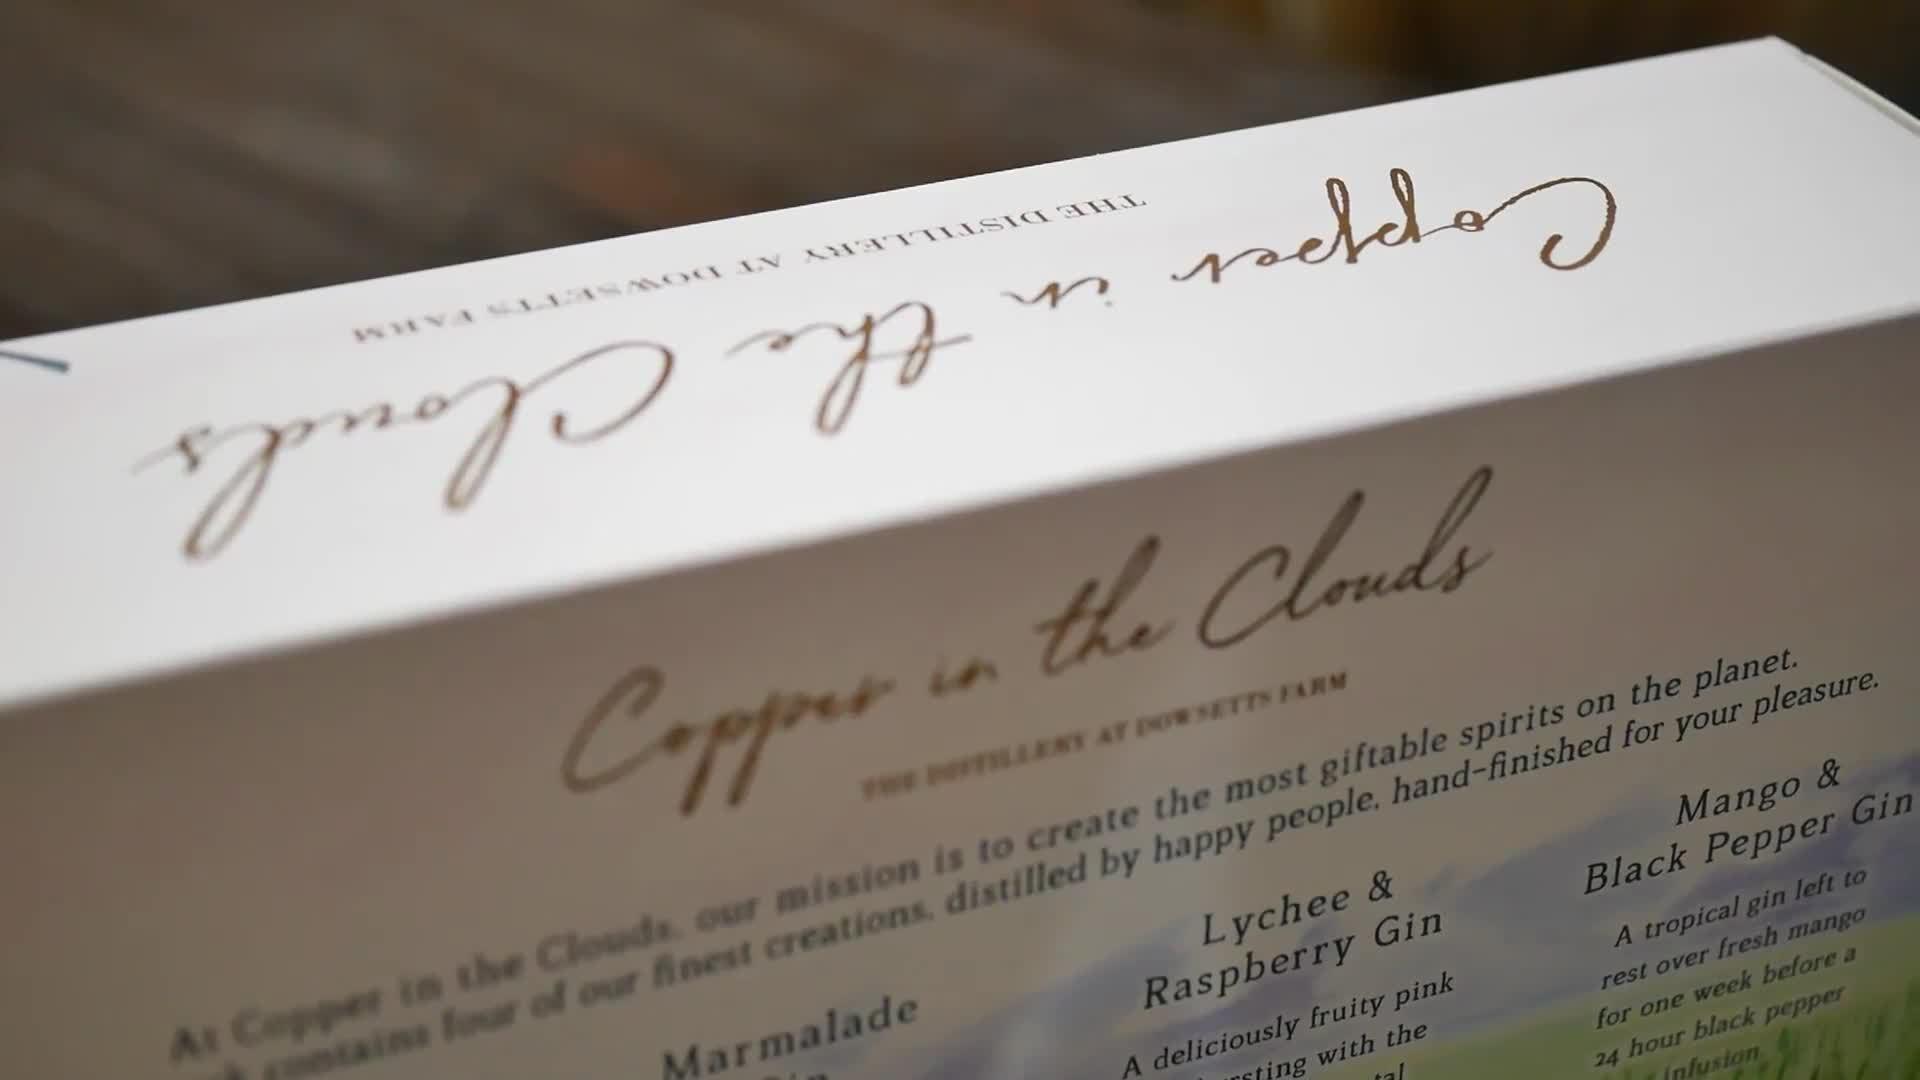 Copper in the Clouds
THE DISTILLERY AT DOWSETTS FARM
Copper in the Clouds
THE DISTILLERY AT DOWSETTS FARM
At Copper in the Clouds, our mission is to create the most giftable spirits on the planet.
contains four of our finest creations, distilled by happy people, hand-finished for your pleasure.
Marmalade
Gin
Lychee &
Raspberry Gin
A deliciously fruity pink
with the
Mango &
Black Pepper Gin
A tropical gin left to
rest over fresh mango
for one week before a
24 hour black pepper
infusion.